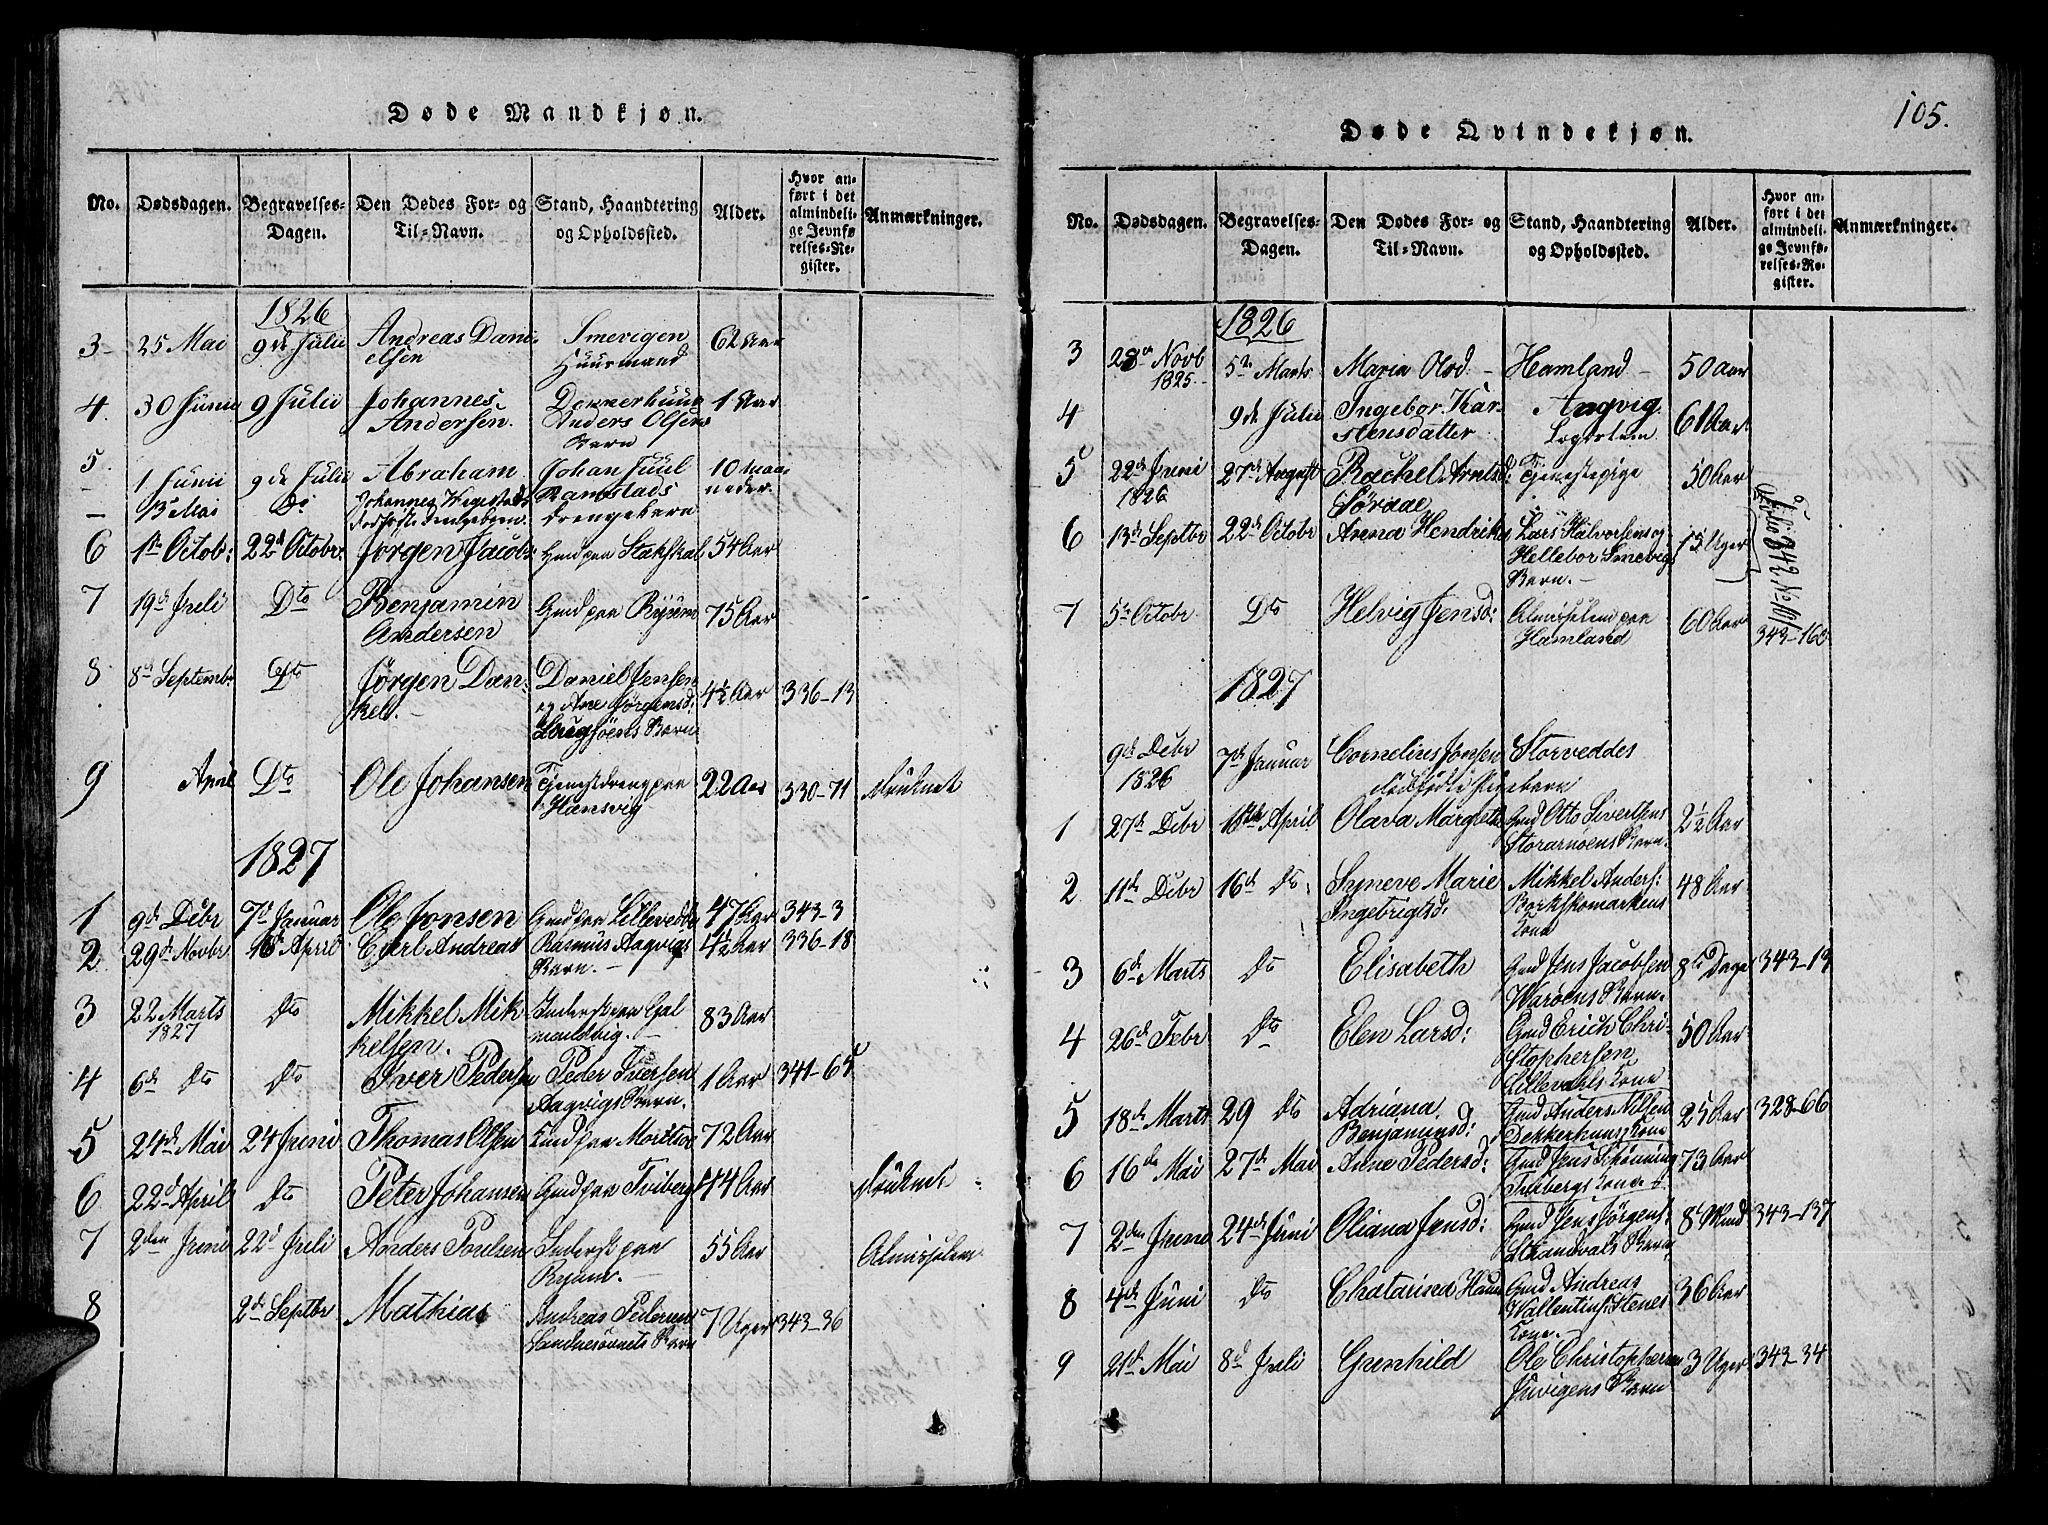 Døde Mandkjøn.
No.
Dødsdagen.
Begravelses-
Dagen.
Den Dødes For- og
Til-Navn.
Stand, Haandtering
og Opholdssted.
Alder.
Hvor an-
ført i det
almindeli-
ge Jevnfø-
relses-Re-
gister.
Anmærkninger.
1826
3 25 Mai 9de Julii Andreas Dani
elsen
Smevigen
Huusmand
62 Aar
4 30 Junii 9 Julii Johannes
Andersen.
Anders Olsens
Barn
1 Aar
5
1 Junii 9de Julii Abraham
Johan Juul
Ramstads
drengebarn
10 maa
neder.
13 Mai Do Johannes
6 1ste Octob: 22d Octobr: Jørgen Jacobs: Gmd paa Stakskal 54 Aar
7 19de Juli Dto Benjamin
Andersen
Gmd paa 75 Aar
8 8de Septembr. Dto Jørgen Dan-
kel.
Daniel Jensen
og Ane Jørgensd:
Barn
4½ Aar 336-13
9 April Dto Ole Johansen Tjenestdreng paa
Hansvig
22 Aar 330-71 druknet
1827
1 9de Debr 7d Januar Ole Jonsen Gmd paa Lillevedde 47 Aar 343-3
2 29de Novbr 16 April Carl Andreas Rasmus Aagvigs
Barn.
4½ Aar 336-18
3 22 Marts
1827
Dto Mikkel Mik
kelsen.
Inderst paa
83 Aar
4 6de Dto Dto Iver Pedersen Peder Iversen
Aagvigs Barn.
1 Aar 341-65
5 24de Mai 24 Juni Thomas Olsen Gmd paa 72 Aar
6 22d April Do Peter Johansen Gmd paa Tviberg 44 Aar druknet
7 2den Juni 22d Juli Anders Poulsen Inderst paa
55 Aar Almisselem
8 2de Septbr Mathias Andreas Pedersen
Barn
7 Uger 343-36
105.
Døde Qvindekjøn.
No.
Dødsdagen.
Begravelses-
Dagen.
Den Dødes For- og
Til-Navn.
Stand, Haandtering
og Opholdssted.
Alder.
Hvor an-
ført i det
almindeli-
ge Jevnfø-
relses-Re-
gister.
Anmærkninger.
1826
3 28de Novb
1825.
5te Marts Maria Olsd Hamland 50 Aar
4 9de Julii Ingebor. Kar-
stensdatter
Angvig.
61 Aar
5 22de Juni
1826
27de August Rachel Arntsd:
Sørdae
Tjenestepige 50 Aar
6 13de Septbr 22de Octobr Arena Hendrike Lars Halvorsens og
Hellebor Smevigs
Barn.
15 Uger Folio 342 No 161
7 5te Octobr Dto Helvig Jensd: Almisselem paa
Hamland
60 Aar 343-160
1827
9de Debr
1826
7de Januar Cornelius Jonsen
dødfødt Pigebarn
Storveddes
1 27de Debr 16de April Olava Margrete Gmd Otto Sivertsens
Storarnøens Barn.
2½ Aar
2 11de Debr 16de Do: Synneve Marie
Ingebrigtsd:
Mikkel Anders:
Borkskomarkens
Kone
48 Aar
3 6de Marts Do Elisabeth Gmd Jens Jacobsen
Warøens Barn.
8te Dage 343-13
4 26de Febr Do Elen Larsd: Gmd Erich Chri-
stophersen
Lillevahls Kone
50 Aar
5 18de Marts 29 Dto Adriana
Benjaminsd:
Gmd Anders Nilsen
Dekkerhuus Kone
25 Aar 328-66
6 16de Mai 27de Mai Anne Pedersd: Gmd Jens Schønning
Tvibergs Kone
73 Aar
7 2den Juni 24de Juni Oliana Jensd: Gmd Jens Jørgens:
Strandvals Barn
8te Mnd 343-137
8 4de Juni Do Chatarisea Hans Gmd Andreas
Wallentins: Stenes
Kone.
36 Aar
9 21d Mai 8d Juli Grenhild Ole Christophersen
Juvigens Barn
3 Uger 343-34